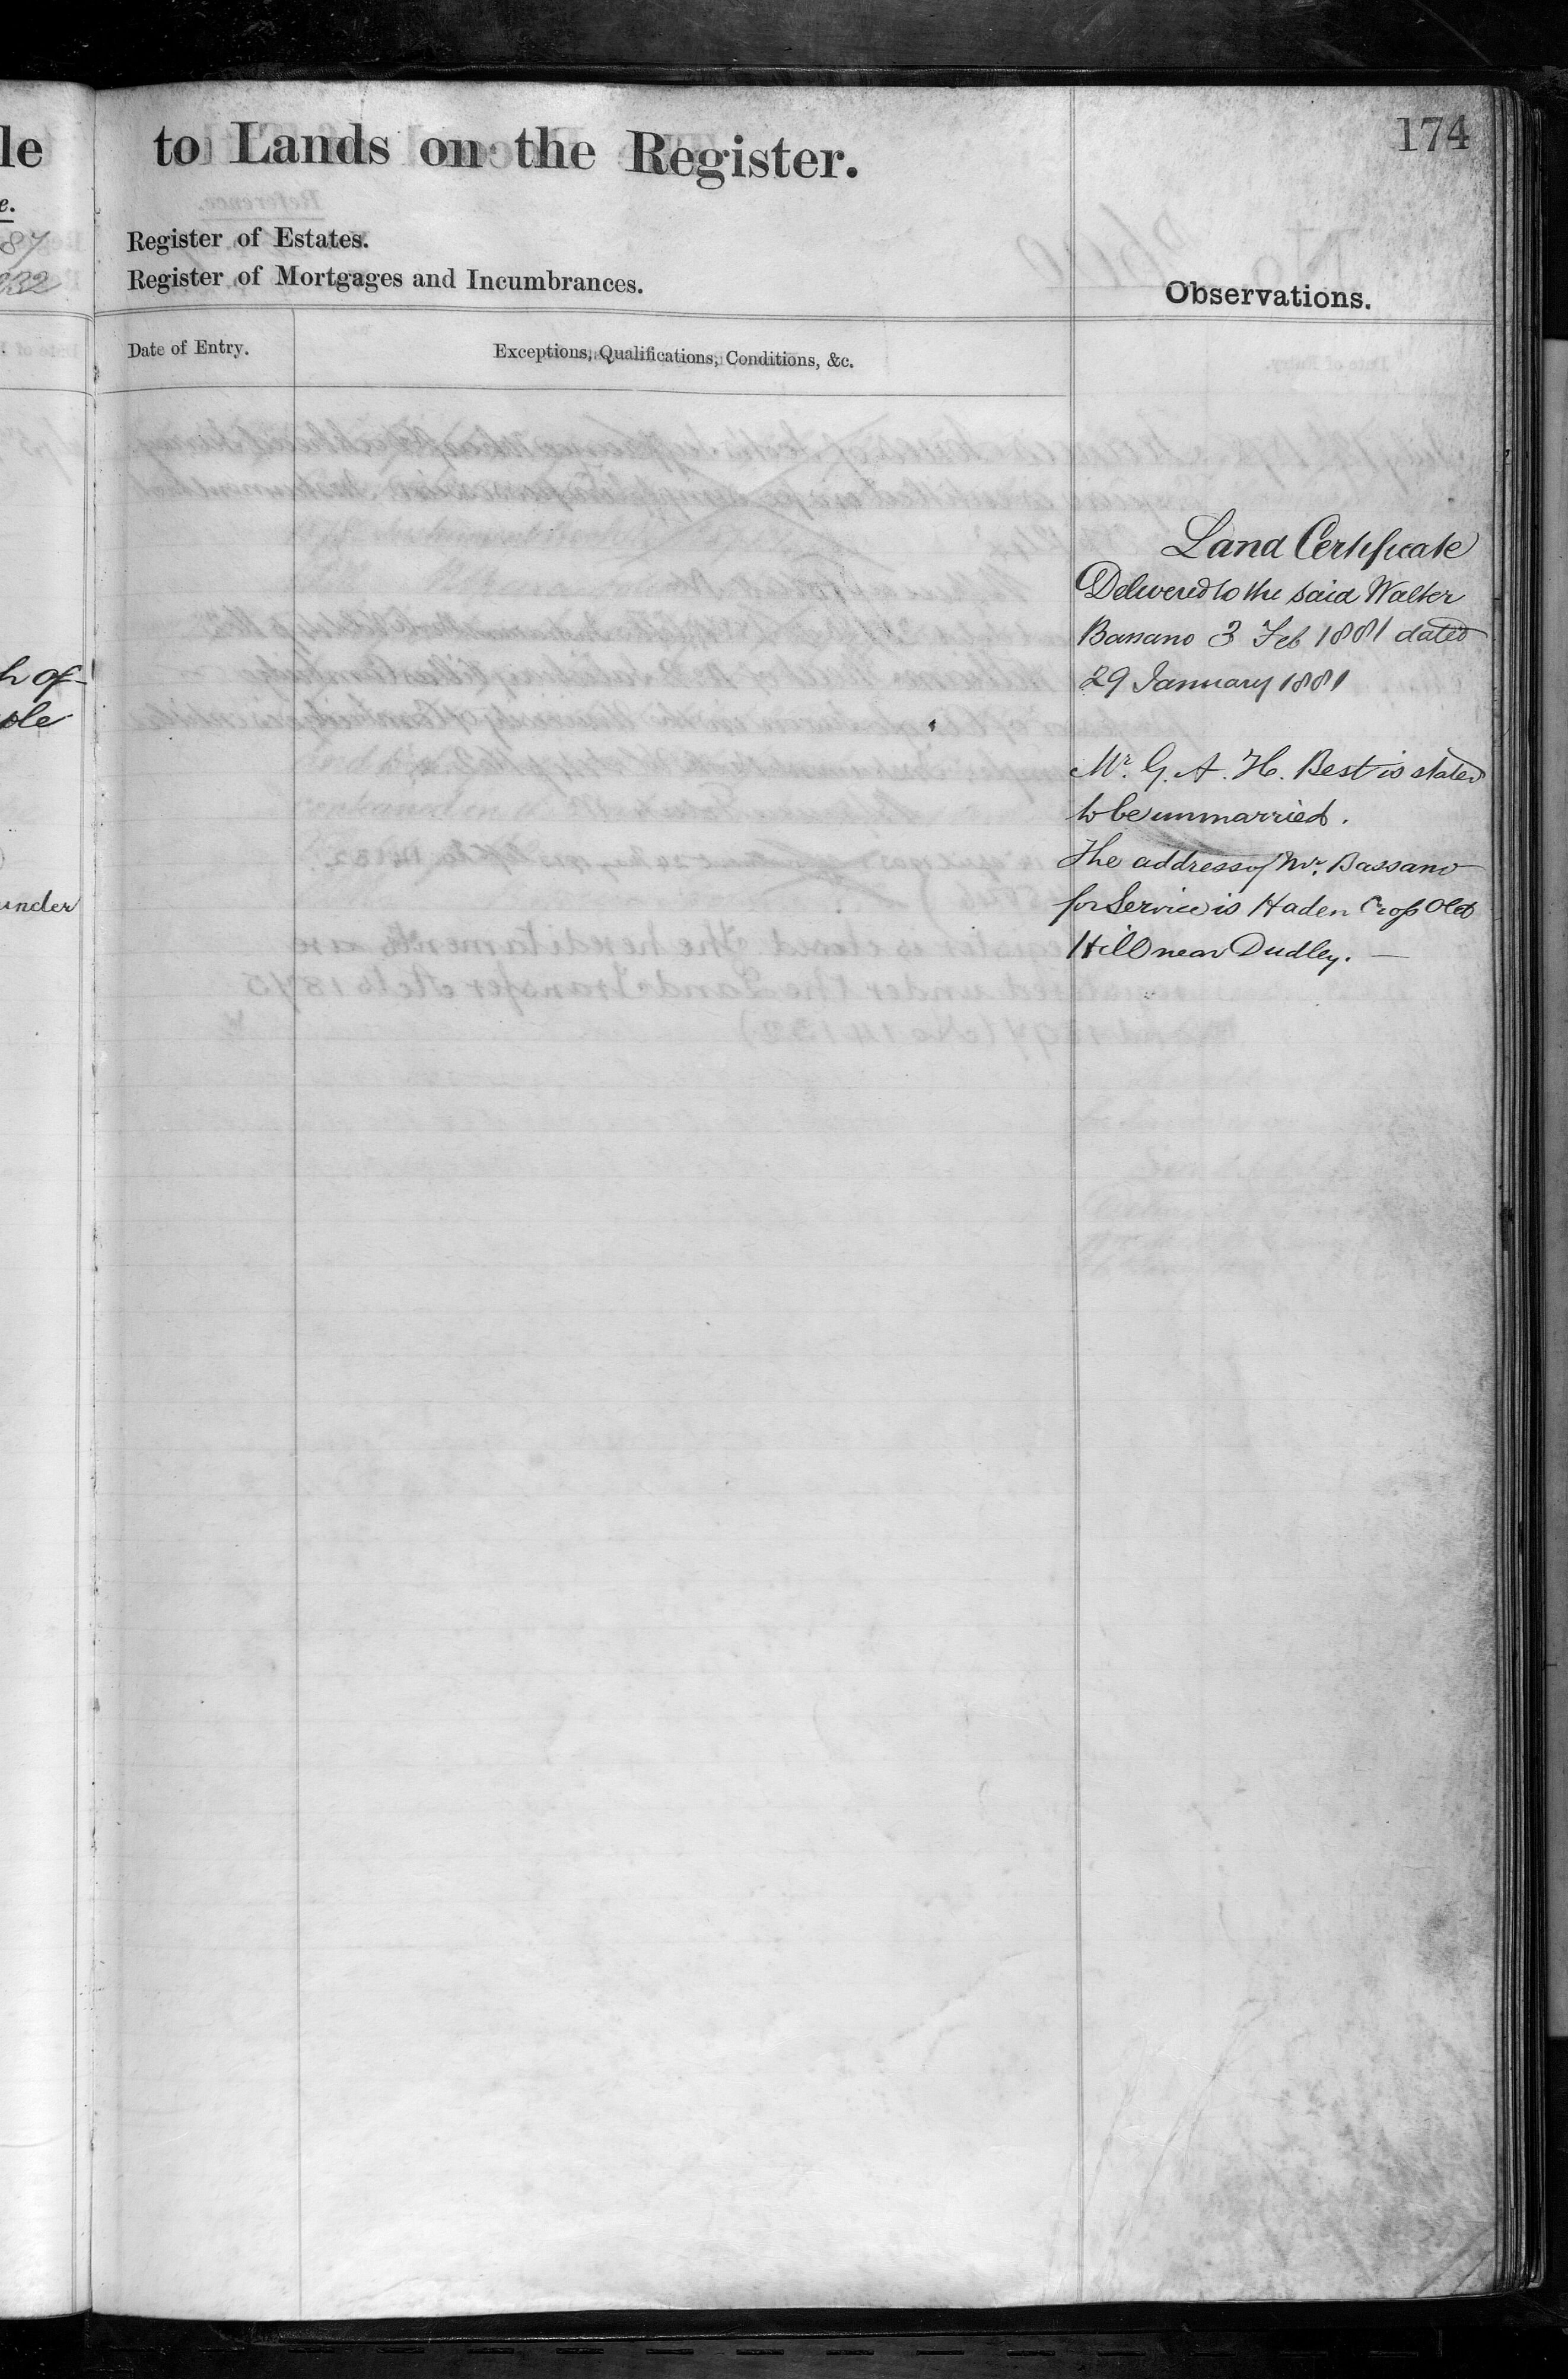 174
le to Lands on the Register.
e.
87
Register of Estates.
232
Register of Mortgages and Incumbrances.
Observations.
Date of Entry.
Exceptions, Qualifications, Conditions, &c.
Land Certificate
Delivered to the said Walter
Bassano 3 Feb 1881 dated
29 January 1881
h of
ole
Mr. G. A. H. Best is stated
to be unmarried.
The address of Mr. Bassano
for Service is Haden Cross Old
under
Hill near Dudley. —